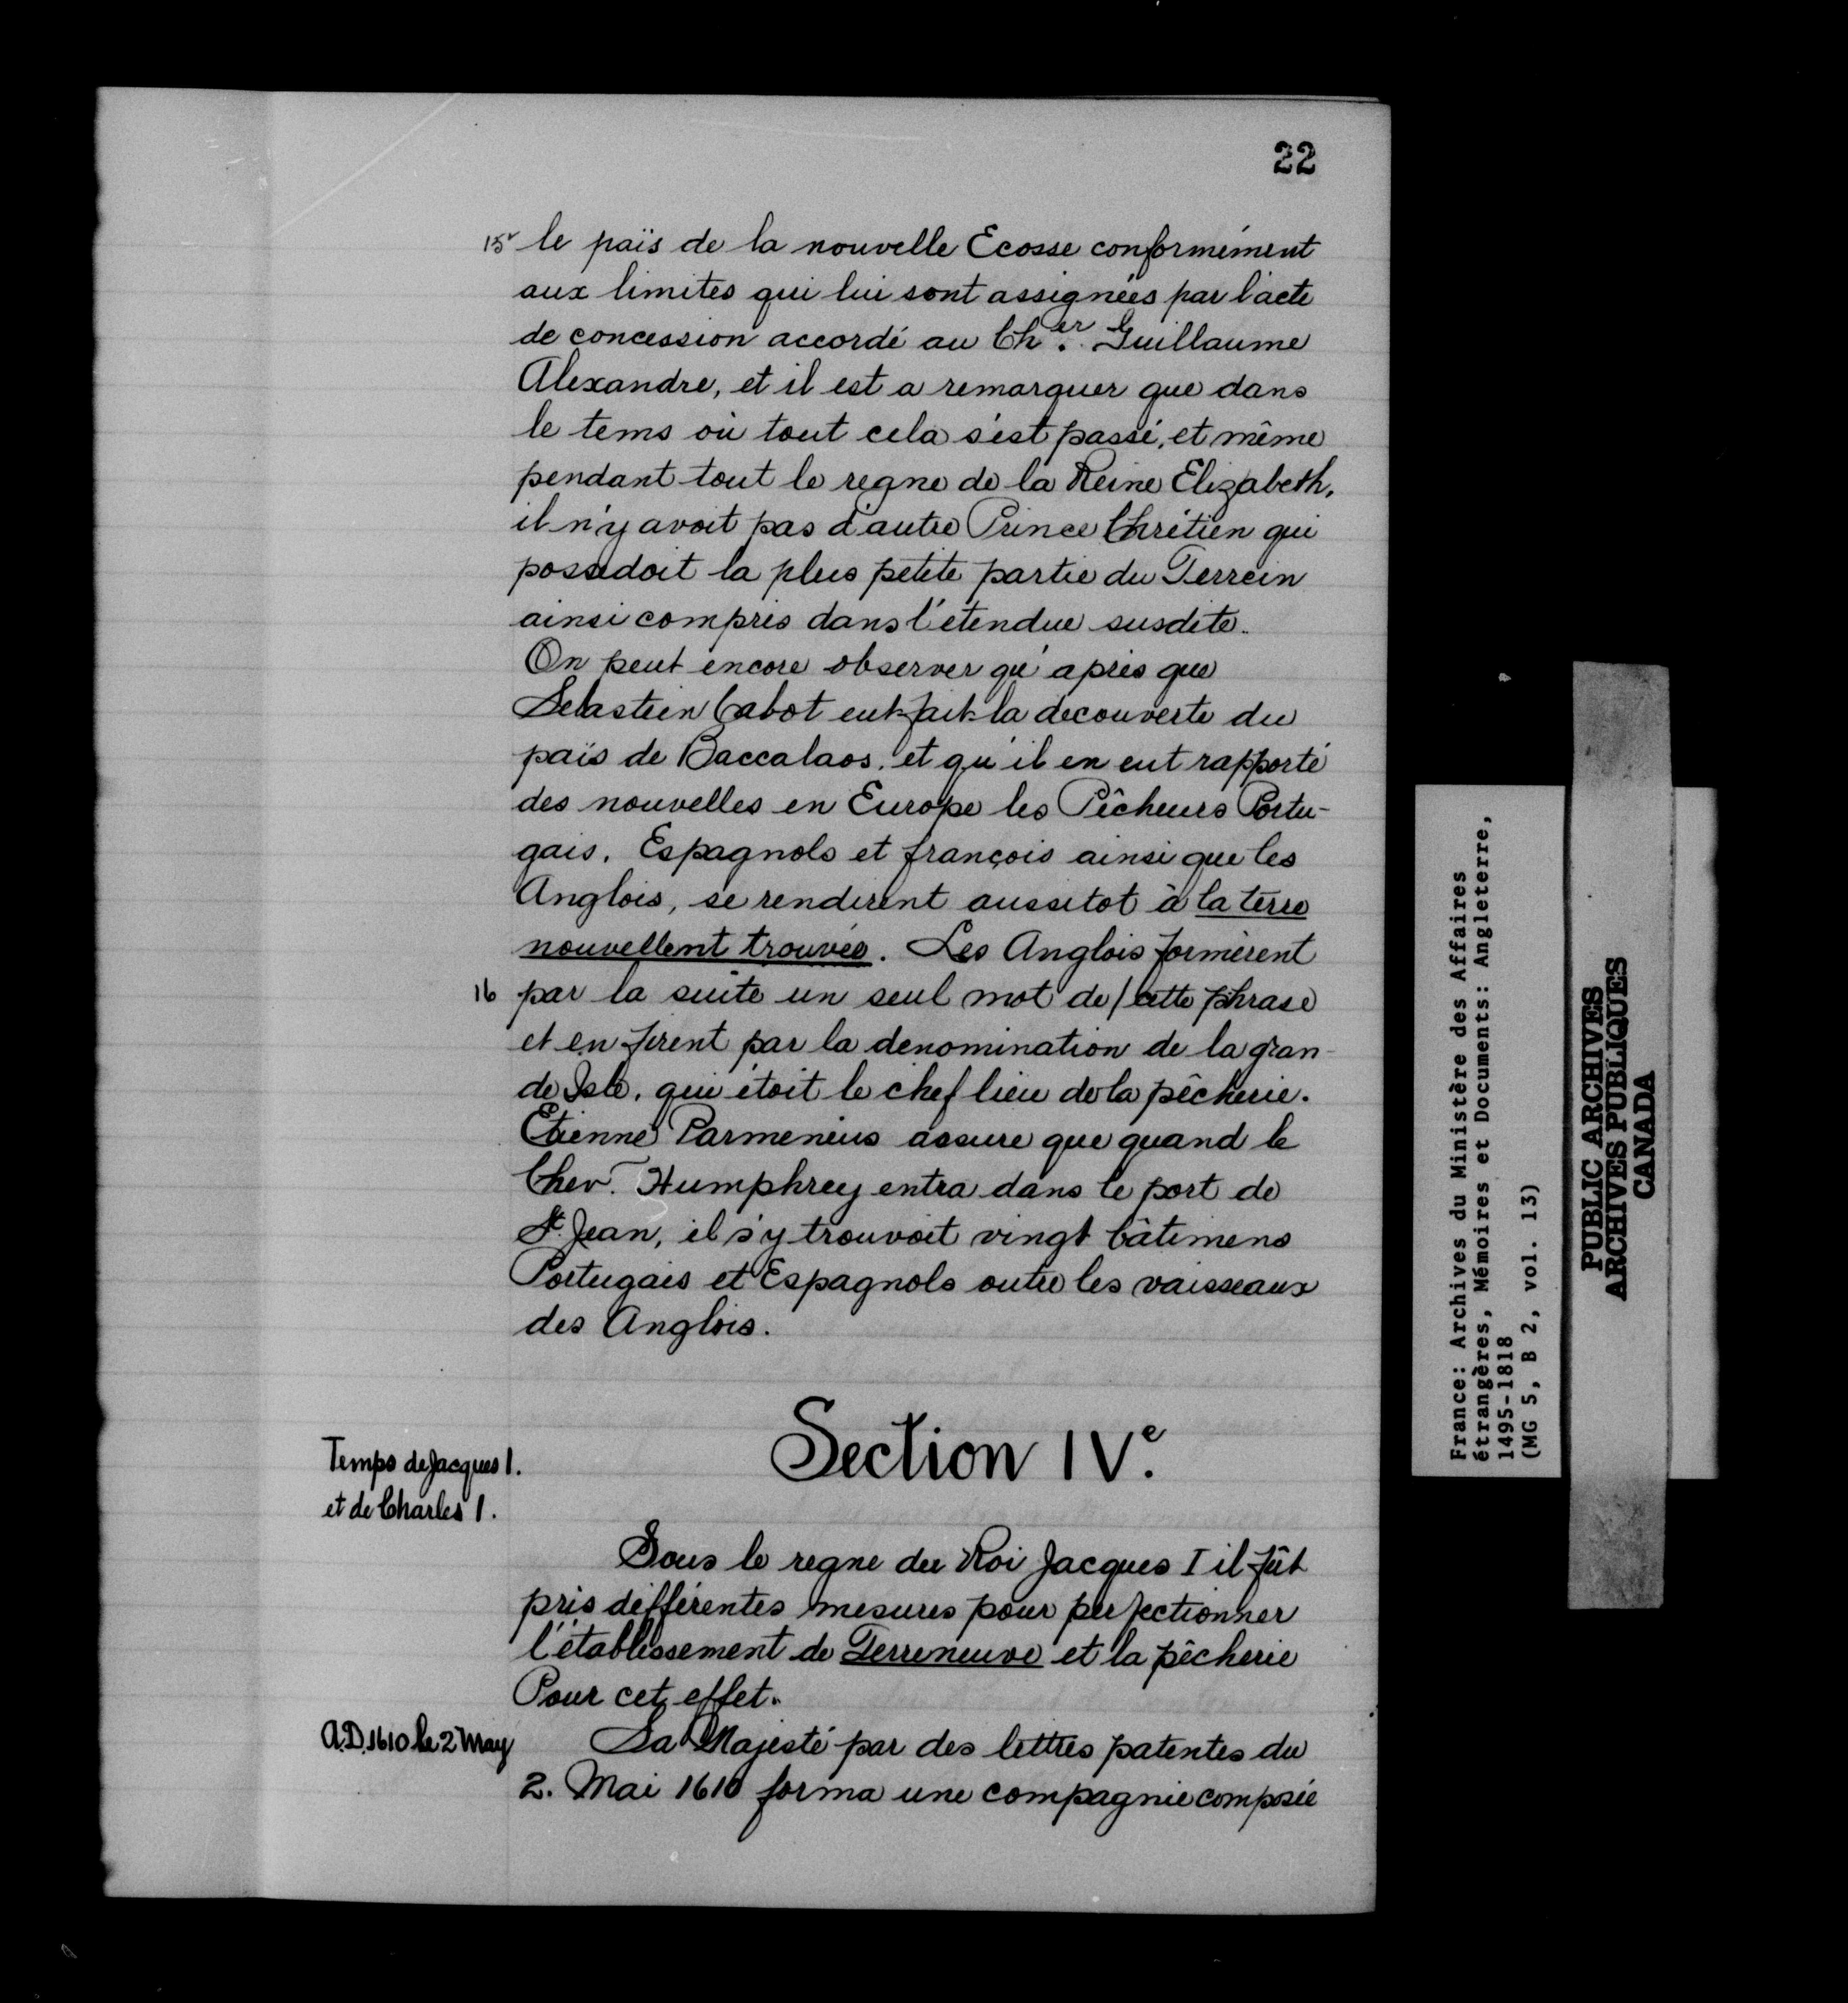 22
15v le païs de la nouvelle Ecosse conformément
aux limites qui lui sont assignées par l'acte
de concession accordé au Ch.er Guillaume
Alexandre, et il est a remarquer que dans
le tems où tout cela s'est passé, et même
pendant tout le regne de la Reine Elizabeth,
il n'y avoit pas d'autre Prince Chrétien qui
possedoit la plus petite partie du Terrein
ainsi compris dans l'étendue susdite.
On peut encore observer qu'après que
Sebastien Cabot eut fait la decouverte du
païs de Baccalaos, et qu'il en eut rapporté
des nouvelles en Europe les Pêcheurs Portu-
gais, Espagnols et françois ainsi que les
Anglois, se rendirent aussitot à la terre
nouvellent trouvée. Les Anglois formèrent
16 par la suite un seul mot de / cette phrase
et en firent par la denomination de la gran-
de Isle, qui étoit le chef lieu de la pêcherie.
Etienne Parmenius assure que quand le
Chev.r Humphrey entra dans le port de
St. Jean, il s'y trouvoit vingt bâtimens
Portugais et Espagnols outre les vaisseaux
des Anglois.
Section IVe.
Temps de Jacques I.
et de Charles I.
Sous le regne du Roi Jacques I il fût
pris différentes mesures pour perfectionner
l'établissement de Terreneuve et la pêcherie
Pour cet effet.
A.D. 1610 le 2 May
Sa Majesté par des lettres patentes du
2. Mai 1610 forma une compagnie composée
France: Archives du Ministère des Affaires
étrangères, Mémoires et Documents: Angleterre,
1495-1818
(MG 5, B 2, vol. 13)
PUBLIC ARCHIVES
ARCHIVES PUBLIQUES
CANADA